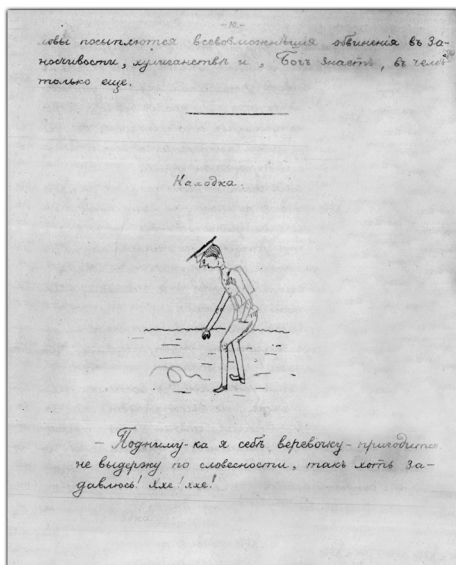 -10.-
ловы посыплются всевозможнѣйшія обвиненія въ за-
носчивости, хулиганствѣ и, Богъ знаетъ, въ чемъ
только еще.
Находка.
- Подниму-ка я себѣ веревочку - пригодится
не выдержу по словесности, такъ хоть за-
давлюсь! Яхе! яхе!